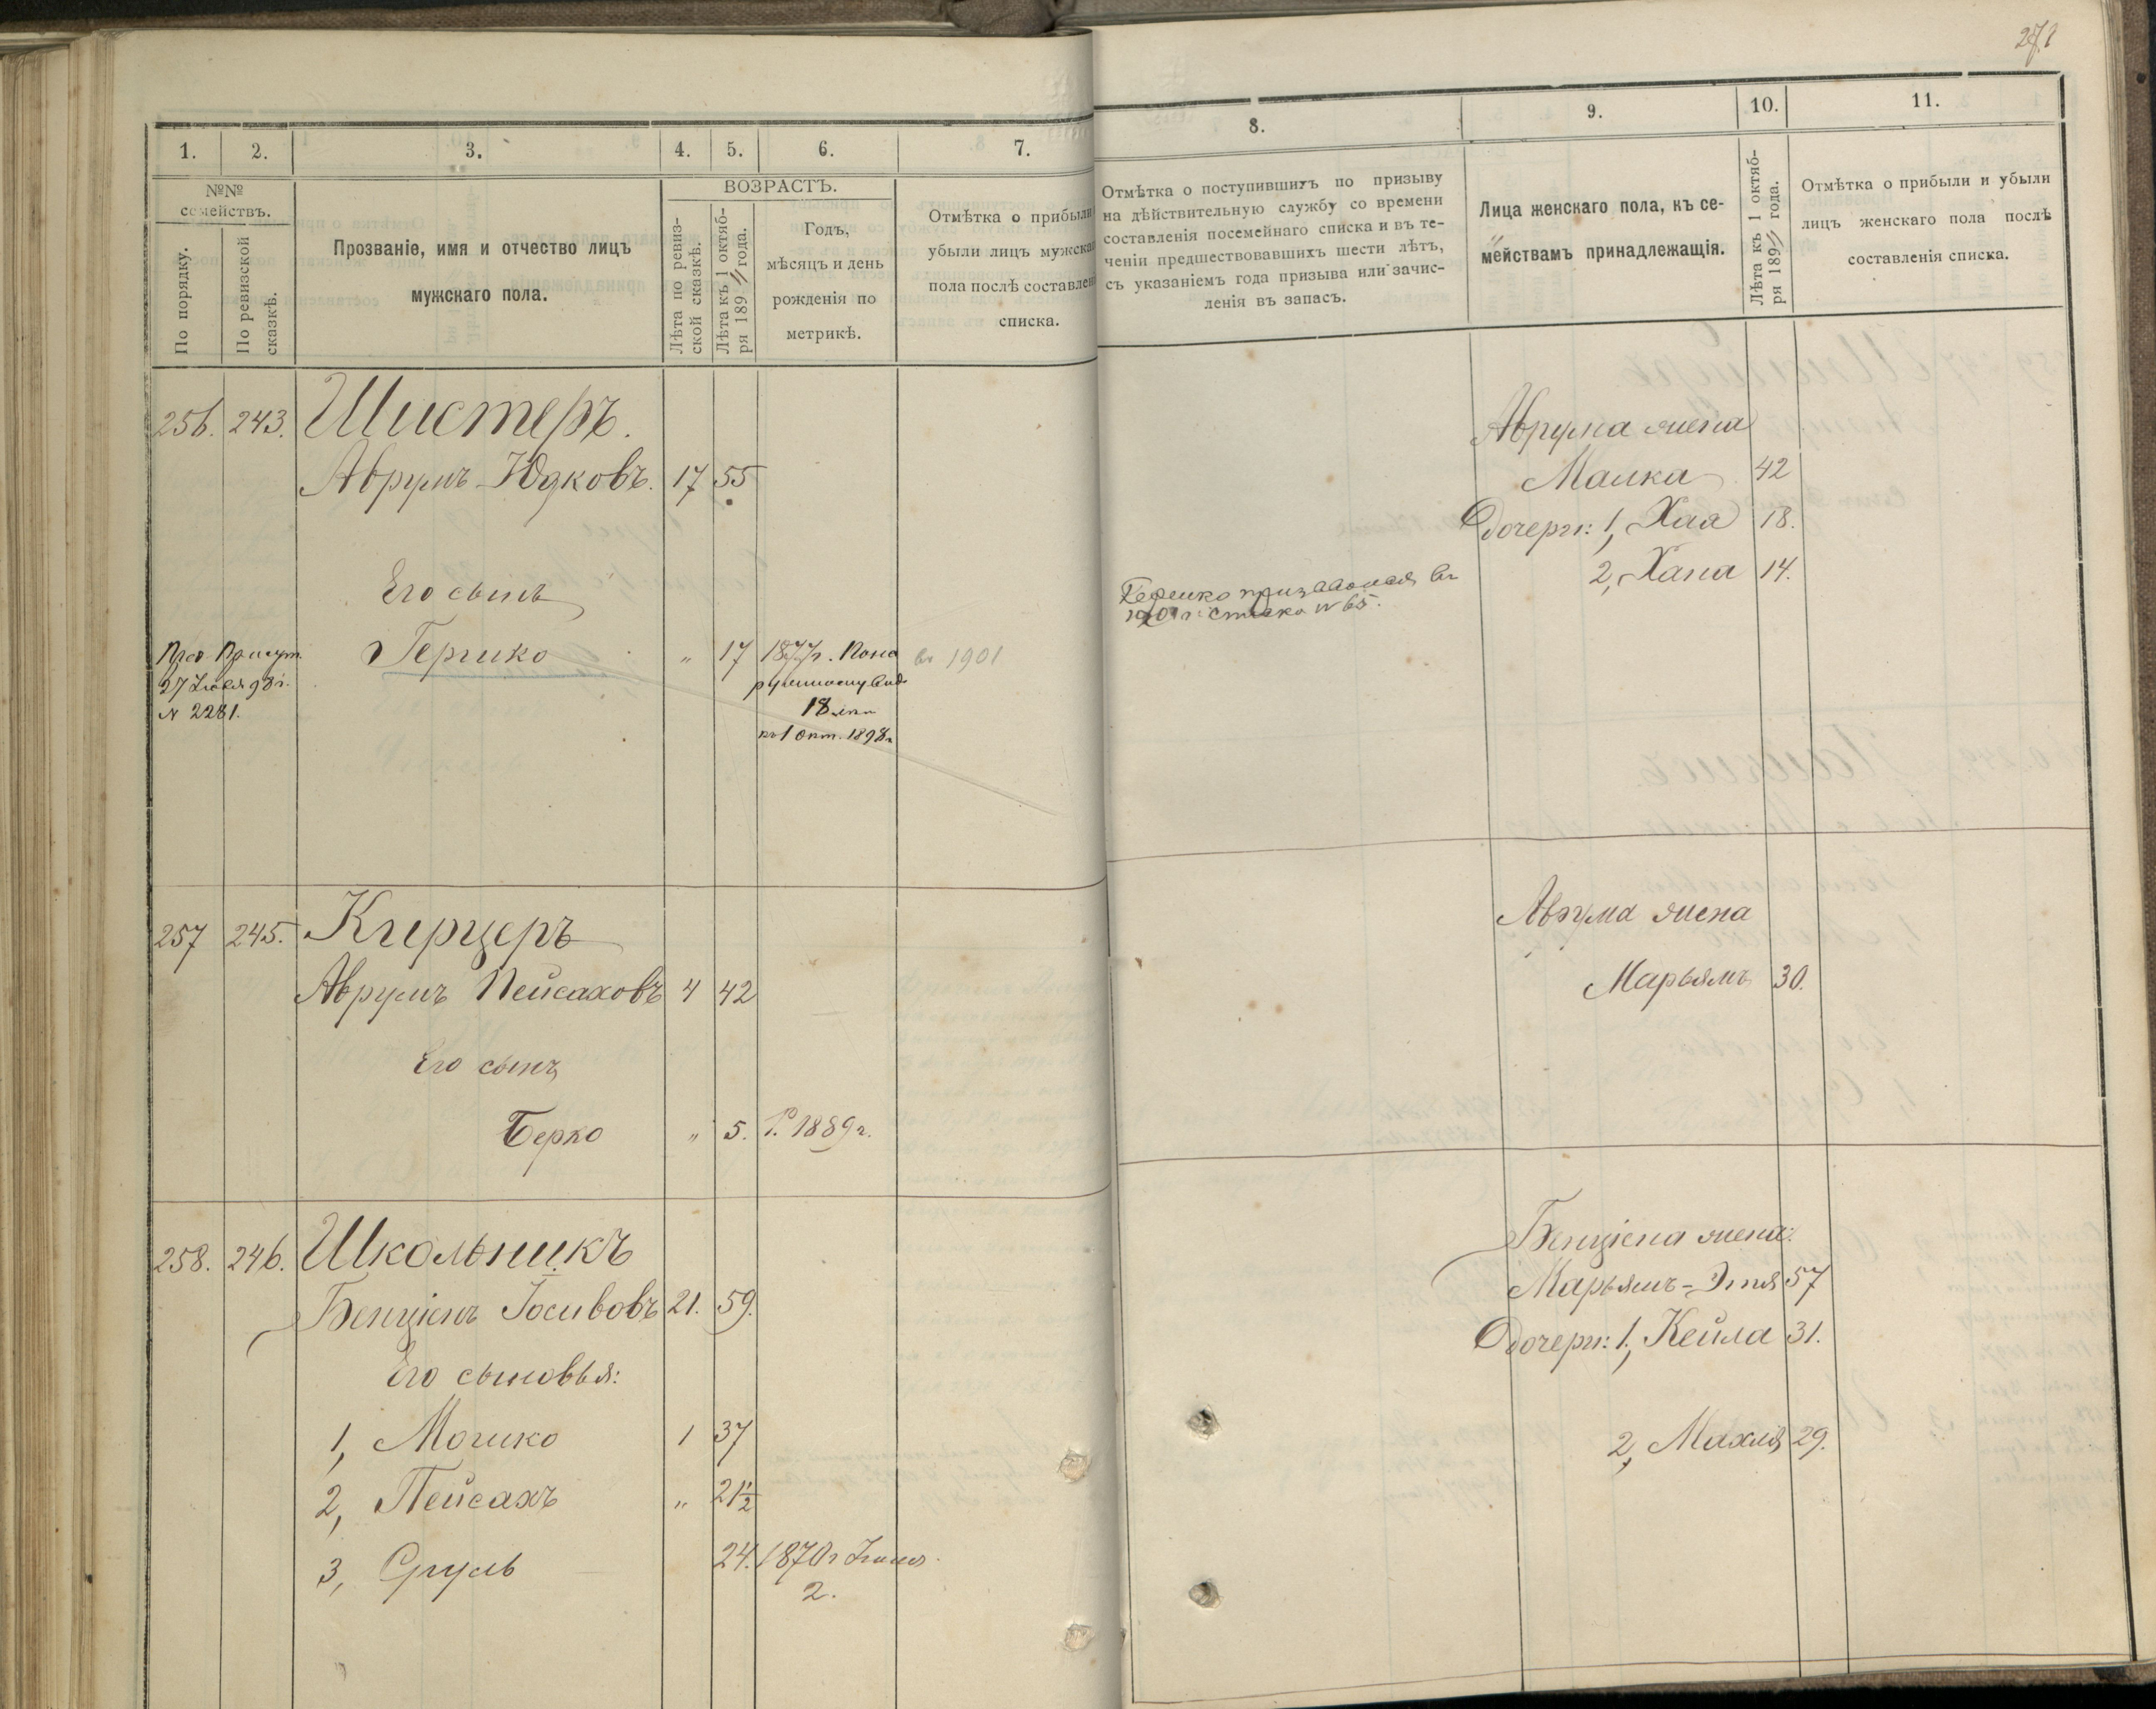 271
1.
2.
3.
4.
5.
6.
7.
№№
семействъ.
По порядку.
По ревизской
сказкѣ.
Прозваніе, имя и отчество лицъ
мужскаго пола.
ВОЗРАСТЪ.
Лѣта по ревиз-
ской сказкѣ.
Лѣта къ 1 октяб-
ря 1894 года.
Годъ,
мѣсяцъ и день
рожденія по
метрикѣ.
Отмѣтка о прибыли
убыли лицъ мужска
пола послѣ составлен
списка.
256. 243. Шистеръ.
Аврумъ-Юдковъ. 17 55
Его сынъ
Гершко " 17 1877г. По на въ 1901
ружному виду
18 лѣтъ
къ 1 Окт. 1898г
Присут.
27 98г.
№ 2281.
257 245. Кперцеръ
Аврумъ Пейсаховъ 4 42
Его сынъ
Берко " 5. Р. 1889г.
258. 246. Школьникъ
Бенціенъ Іосивовъ 21. 59.
Его сыновья:
1, Мошко 1 37
2, Пейсахъ " 21½
3, Сруль 24. 1870г Іюня
2.
8.
9.
10.
11.
Отмѣтка о поступившихъ по призыву
на дѣйствительную службу со времени
составленія посемейнаго списка и въ те-
ченіи предшествовавшихъ шести лѣтъ,
съ указаніемъ года призыва или зачис-
ленія въ запасъ.
Лица женскаго пола, къ се-
мействамъ принадлежащія.
Лѣта къ 1 октяб-
ря 1894 года.
Отмѣтка о прибыли и убыли
лицъ женскаго пола послѣ
составленія списка.
Аврума жена
Малка 42
дочери: 1, Хая 18.
2, Хана 14.
Гершко призывался въ
1901 г: списка № 65.
Аврума жена
Марьямъ 30.
Бенціена жена:
Марьямъ-Этя 57
дочери: 1, Кейла 31.
2, Махля 29.